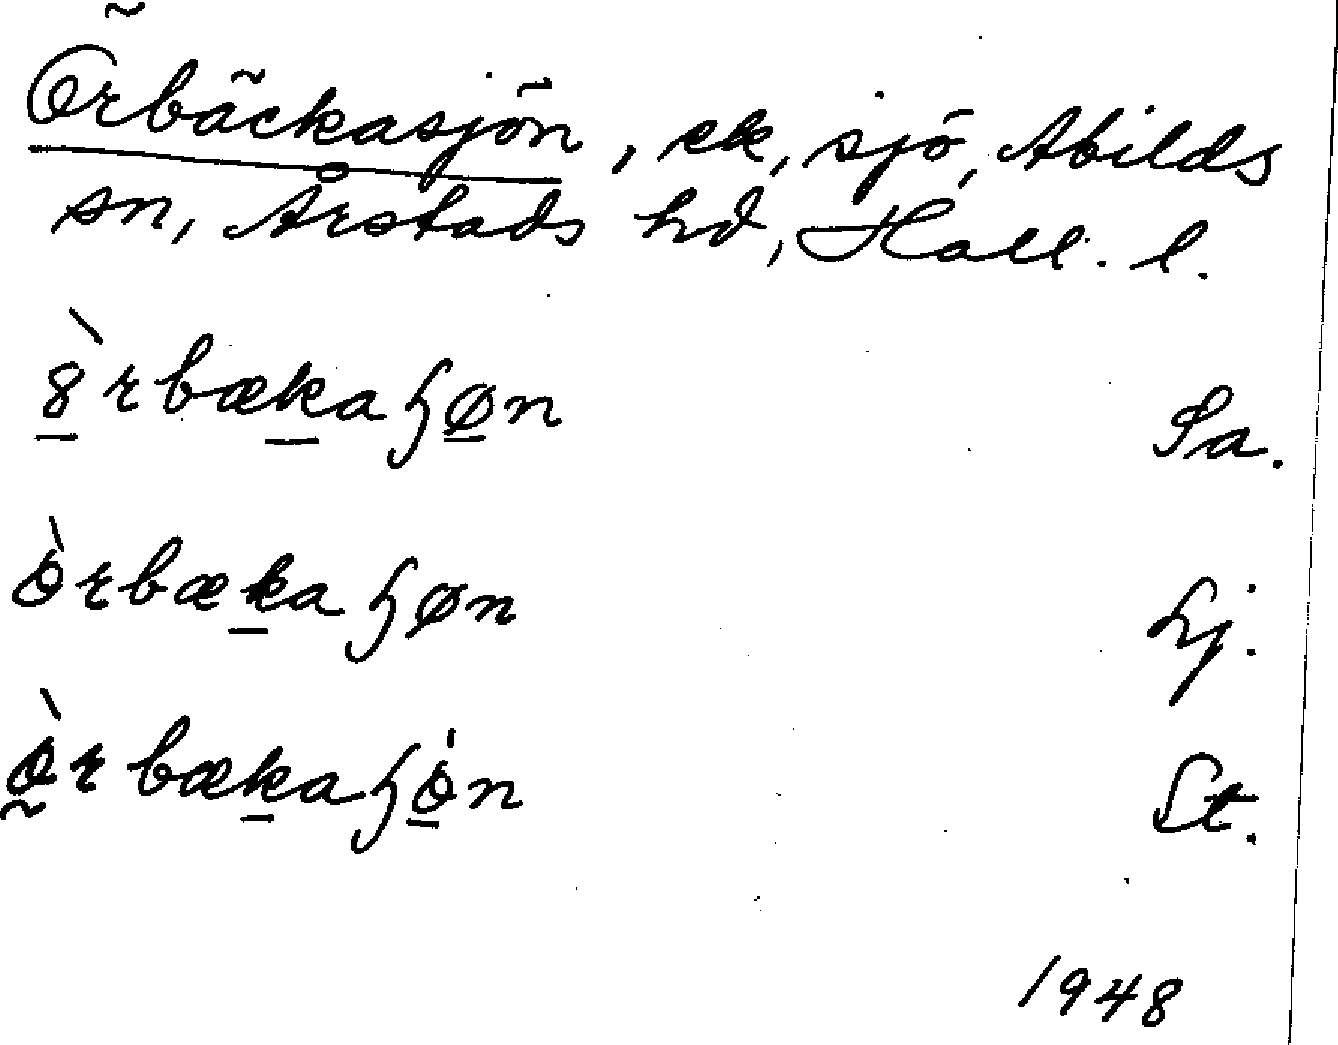 Örbäckasjön, ek, sjö, Abilds
sn, Årstads hd, Hall. l.
ȣ̀rbækaɧøn Sa.
òrbækaɧøn Lj.
òrbækaɧön St.
1948